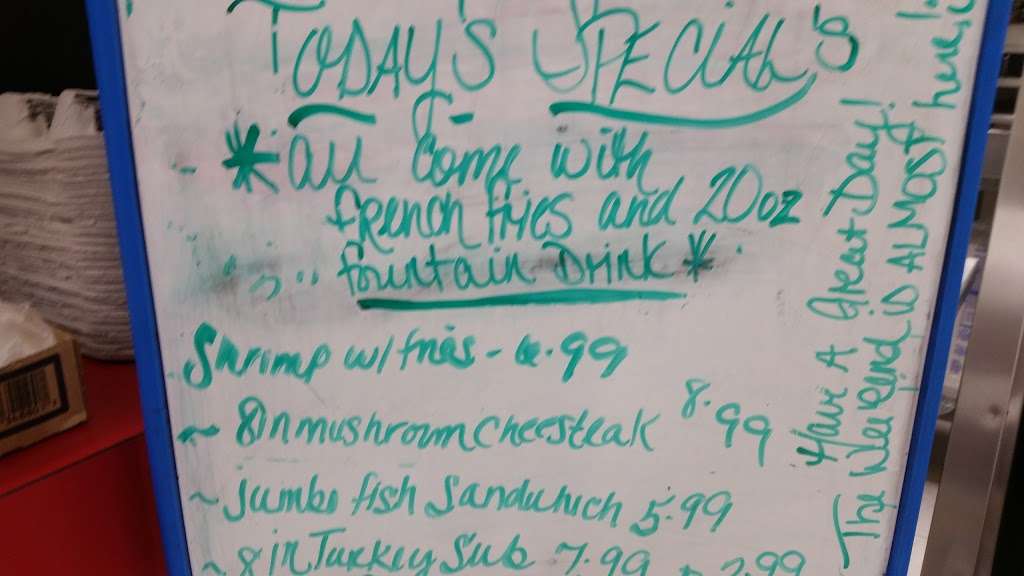 TODAY'S SPECIALS
* all come with
french fries and 20oz
fountain Drink *
Shrimp w/fries - 6.99
~ 8in mushroom cheesteak 8.99
~ Jumbo fish Sandwhich 5.99
~ 8 in Turkey Sub 7.99
Have A Great Day!
The Weekend is ALMOST here!